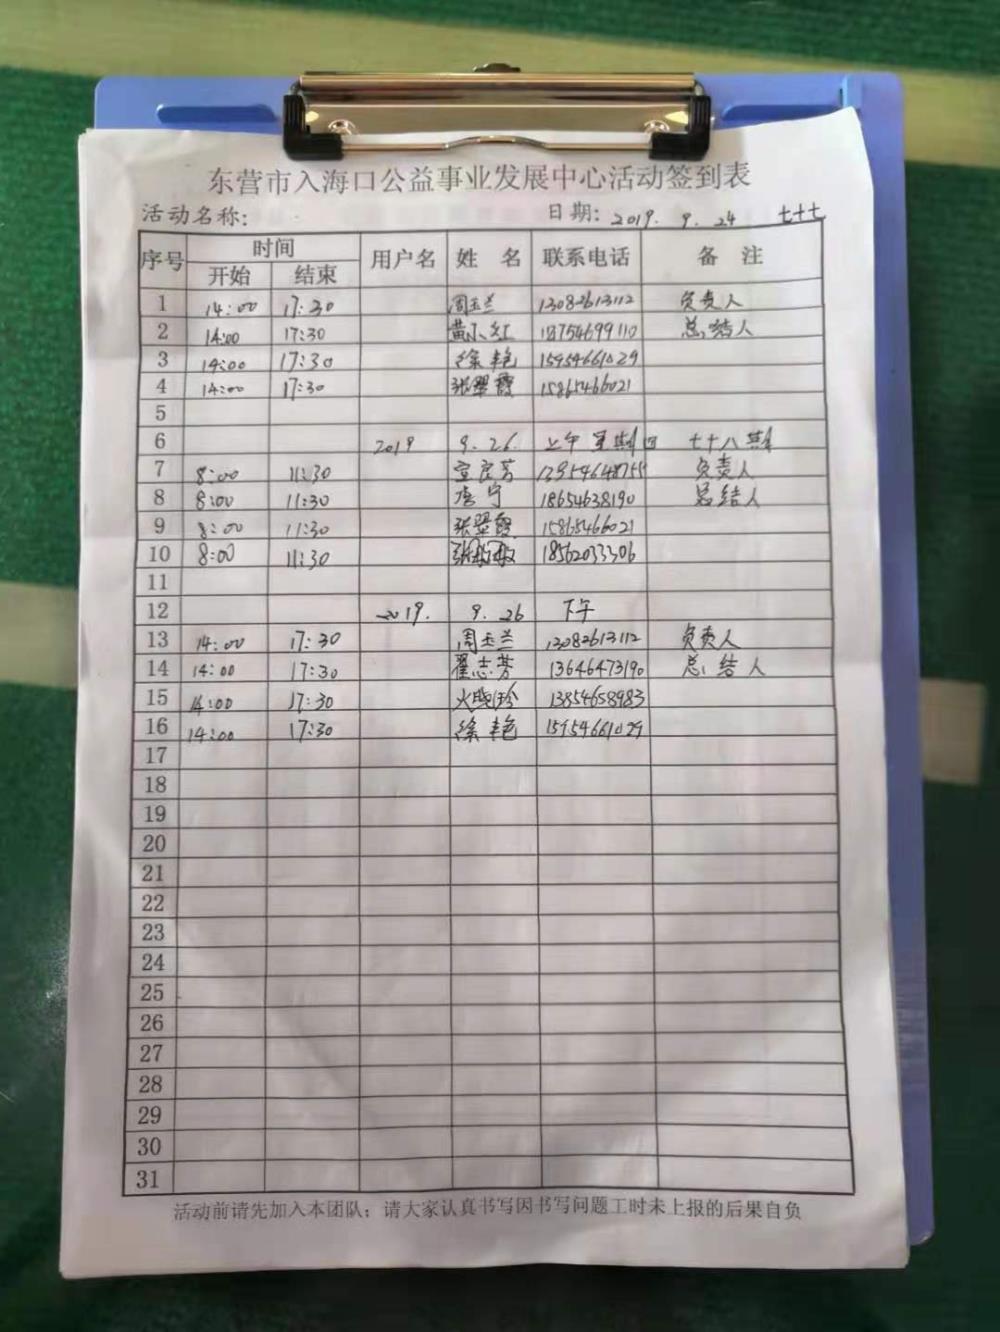 东营市入海口公益事业发展中心活动签到表
活动名称: 日期: 2019. 9. 24 七十七
序号 时间 用户名 姓 名 联系电话 备 注
开始 结束
1 14:00 17:30 周玉兰 13082613112 负责人
2 14:00 17:30 黄小红 18754699110 总结人
3 14:00 17:30 徐艳 15954661029
4 14:00 17:30 张翠霞 15865466021
5
6 2019 9.26. 上午 星期四 七十八期
7 8:00 11:30 宣良芳 13954648755 负责人
8 8:00 11:30 李宁 18654638190 总结人
9 8:00 11:30 张翠霞 15865466021
10 8:00 11:30 18562033306
11
12 2019. 9.26 下午
13 14:00 17:30 周玉兰 13082613112 负责人
14 14:00 17:30 翟志芳 13646473190 总结人
15 14:00 17:30 火晓玲 13854658983
16 14:00 17:30 徐艳 15954661029
17
18
19
20
21
22
23
24
25
26
27
28
29
30
31
活动前请先加入本团队；请大家认真书写因书写问题工时未上报的后果自负